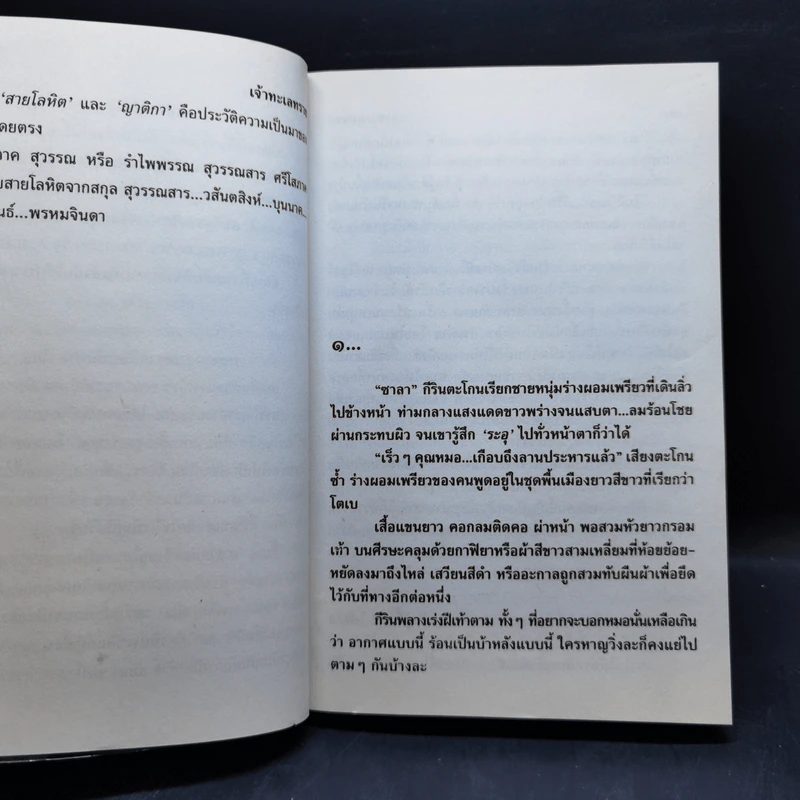 เจ้าทะเลทราย
‘สายโลหิต’ และ ‘ญาติกา’ คือประวัติความเป็นมาของ
ดยตรง
าค สุวรรณ หรือ รำไพพรรณ สุวรรณสาร ศรีโสภาค
ยสายโลหิตจากสกุล สุวรรณสาร...วสันตสิงห์...บุนนาค...
นธ์...พรหมจินดา
๑...
“ซาลา” กีรินตะโกนเรียกชายหนุ่มร่างผอมเพรียวที่เดินลิ่ว
ไปข้างหน้า ท่ามกลางแสงแดดขาวพร่างจนแสบตา...ลมร้อนโชย
ผ่านกระทบผิว จนเขารู้สึก ‘ระอุ’ ไปทั่วหน้าตาก็ว่าได้
“เร็วๆ คุณหมอ...เกือบถึงลานประหารแล้ว” เสียงตะโกน
ซ้ำ ร่างผอมเพรียวของคนพูดอยู่ในชุดพื้นเมืองยาวสีขาวที่เรียกว่า
โตเบ
เสื้อแขนยาว คอกลมติดคอ ผ่าหน้า พอสวมหัวยาวกรอม
เท้า บนศีรษะคลุมด้วยกาฟิยาหรือผ้าสีขาวสามเหลี่ยมที่ห้อยย้อย-
หยัดลงมาถึงไหล่ เสวียนสีดำ หรืออะกาลถูกสวมทับผืนผ้าเพื่อยึด
ไว้กับที่ทางอีกต่อหนึ่ง
กีรินพลางเร่งฝีเท้าตาม ทั้งๆ ที่อยากจะบอกหมอนั่นเหลือเกิน
ว่า อากาศแบบนี้ ร้อนเป็นบ้าหลังแบบนี้ ใครหาญวิ่งละก็คงแย่ไป
ตามๆ กันบ้างละ